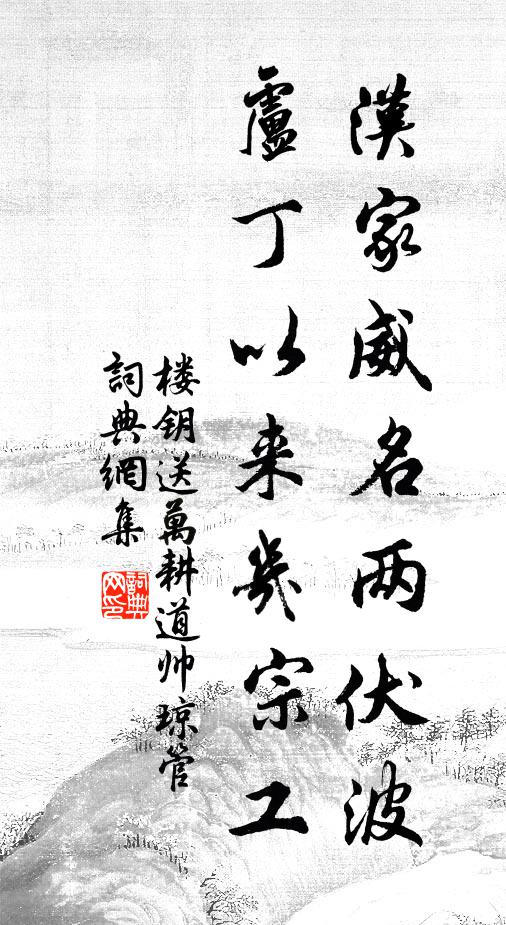 漢家威名两伏波
盧丁以来幾宗工
楼钥送萬耕道帅琼管
詞典網集
詞典网印